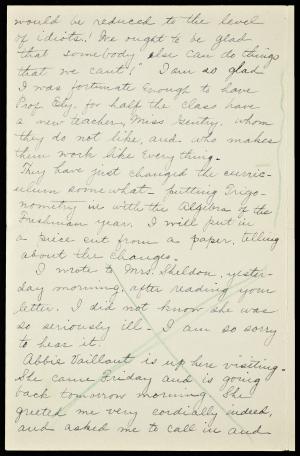 would be reduced to the level
of idiots! We ought to be glad
that somebody else can do things
that we can't!" I am so glad
I was fortunate enough to have
Prof. Ely, for half the class have
a new teacher, Miss Gentry, whom
they do not like, and who makes
them work like everything.
They have just changed the curric-
ulum somewhat - putting Trigo-
nometry in with the Algebra of the
Freshman year. I will put in
a piece cut from a paper, telling
about the changes.
I wrote to Mrs. Sheldon, yester-
day morning, after reading your
letter. I did not know she was
so seriously ill - I am so sorry
to hear it.
Abbie Vaillant is up here visiting.
She came Friday and is going
back tomorrow morning. She
greeted me very cordially indeed,
and asked me to call in and